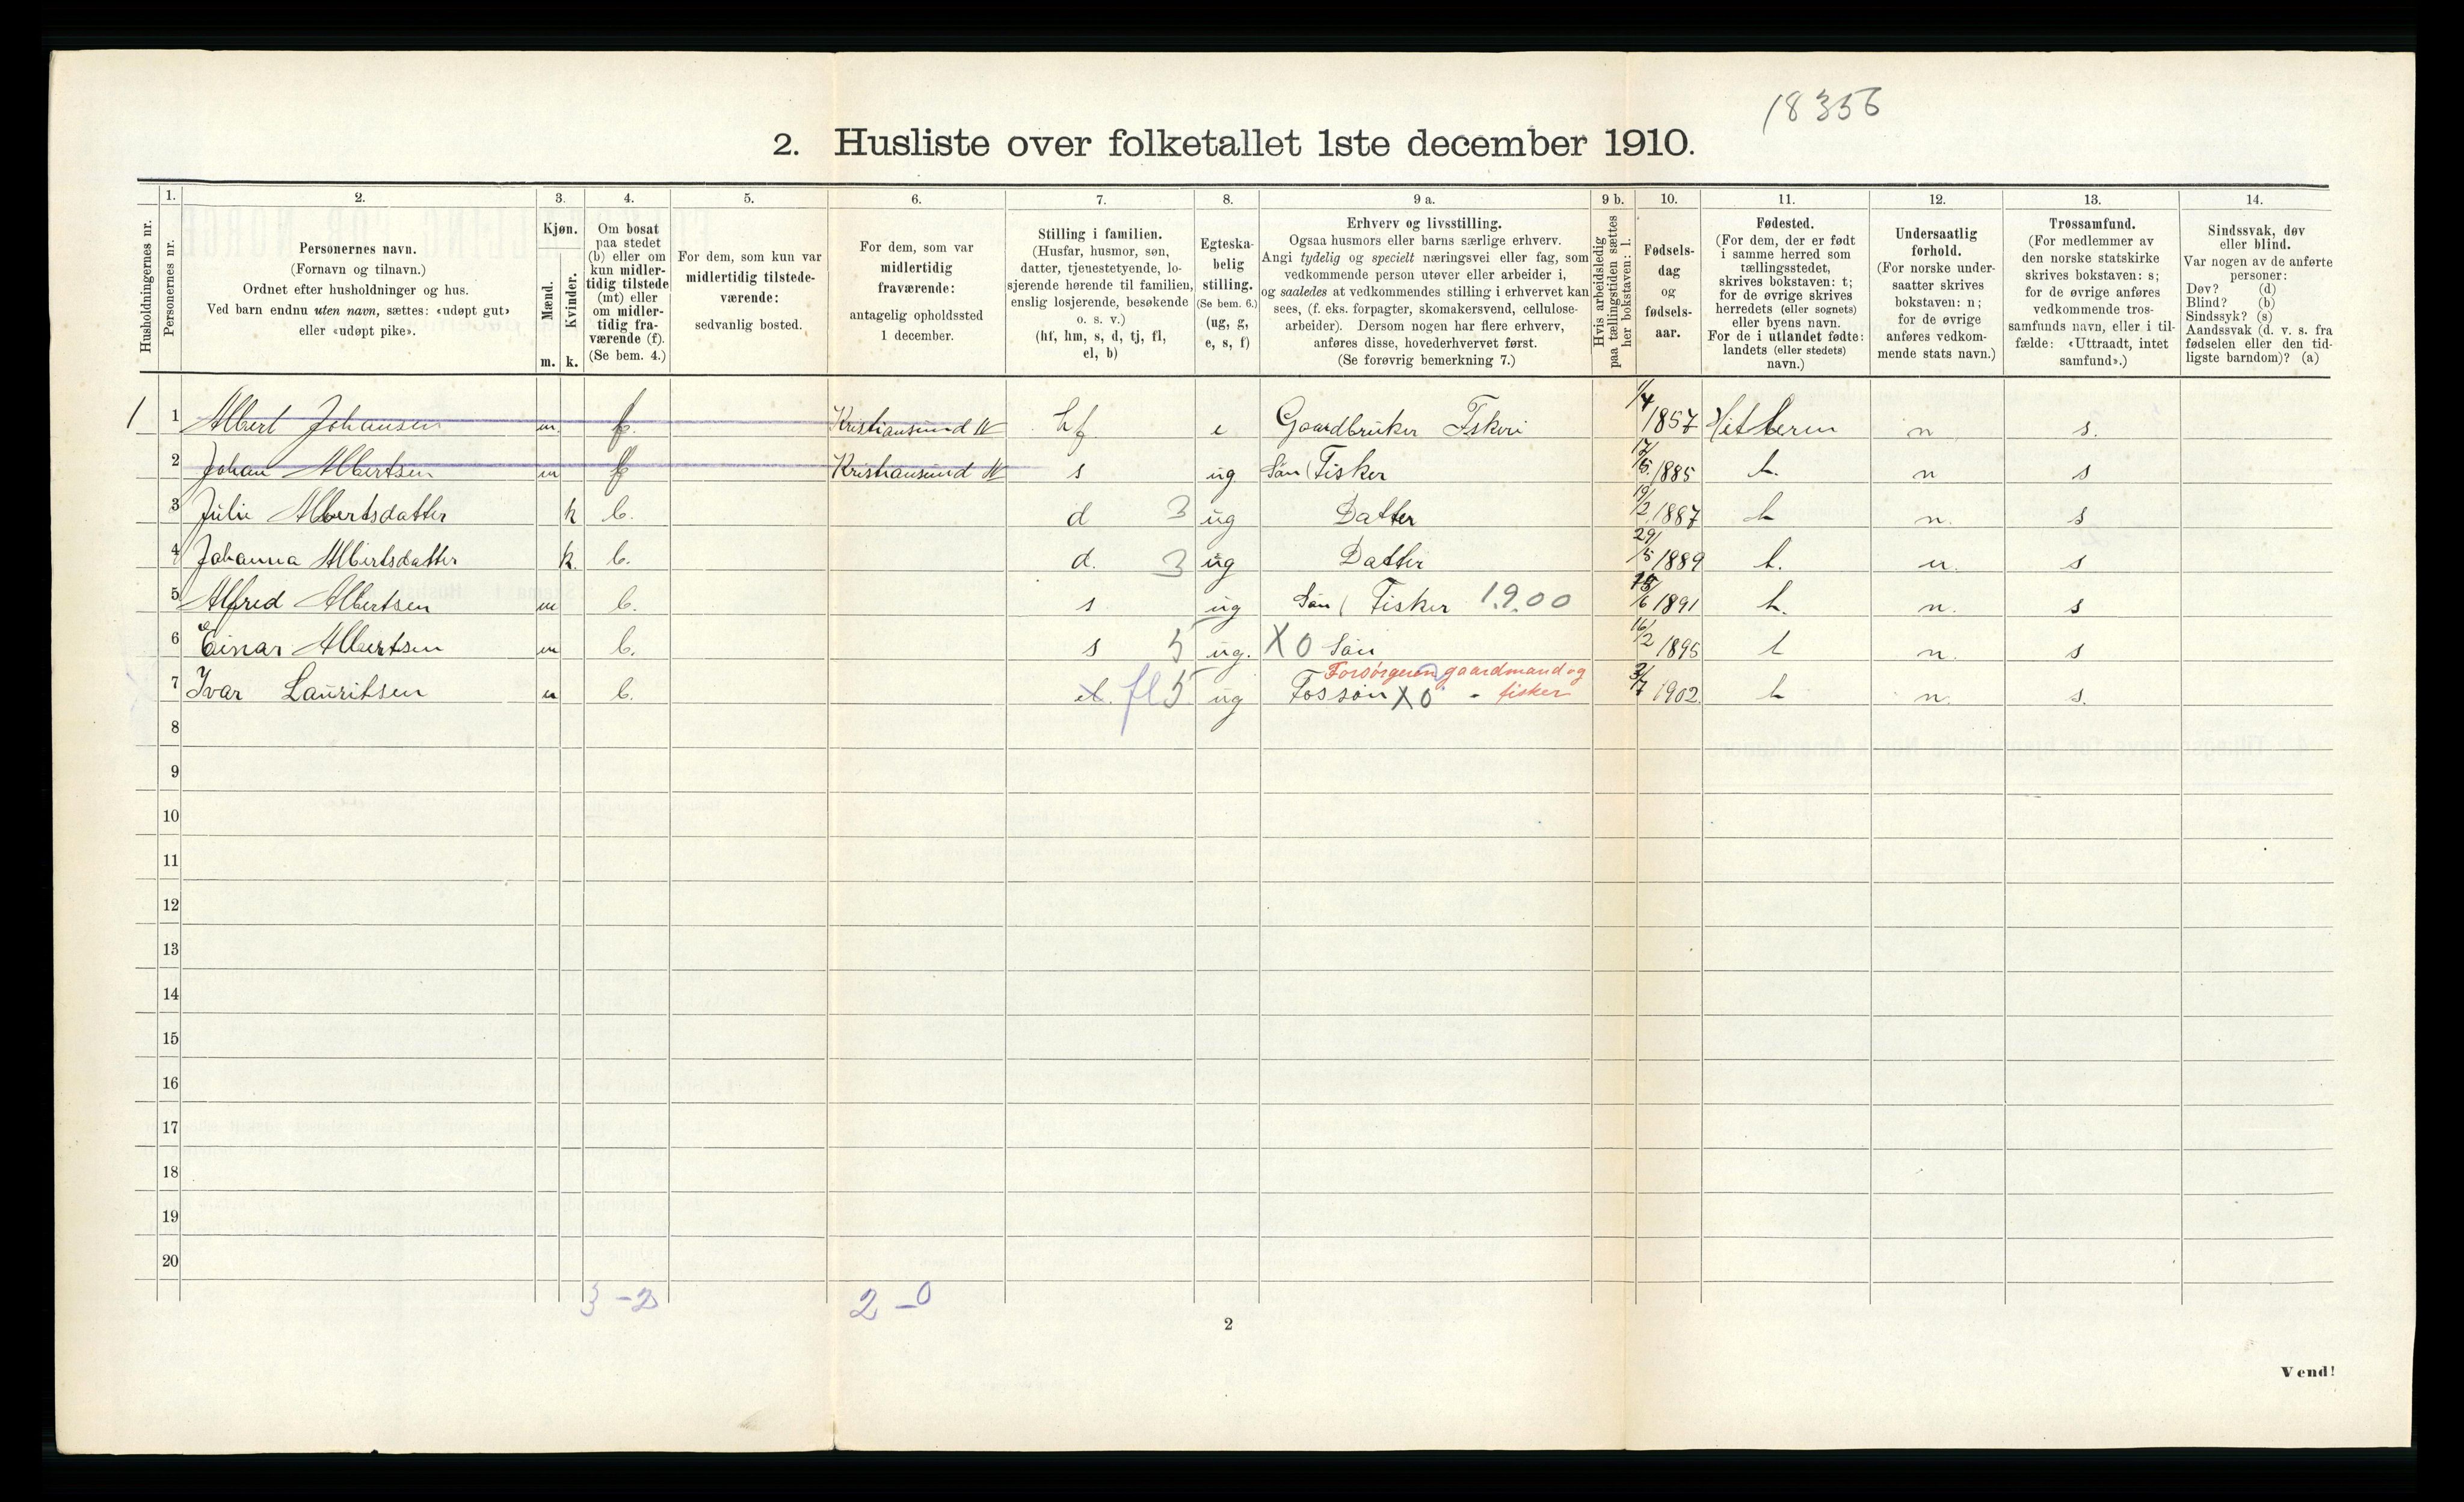 18356
2. Husliste over folketallet 1ste december 1910.
Husholdningernes nr.
1. Personernes nr.
2. Personernes navn.
(Fornavn og tilnavn.)
Ordnet efter husholdninger og hus.
Ved barn endnu uten navn, sættes: «udøpt gut»
eller «udøpt pike».
3. Kjøn.
Mænd. m.
Kvinder. k.
4. Om bosat
paa stedet
(b) eller om
kun midler-
tidig tilstede
(mt) eller
om midler-
tidig fra-
værende (f).
(Se bem. 4.)
5. For dem, som kun var
midlertidig tilstede-
værende:
sedvanlig bosted.
6. For dem, som var
midlertidig
fraværende:
antagelig opholdssted
1 december.
7. Stilling i familien.
(Husfar, husmor, søn,
datter, tjenestetyende, lo-
sjerende hørende til familien,
enslig losjerende, besøkende
o. s. v.)
(hf, hm, s, d, tj, fl,
el, b)
8. Egteska-
belig
stilling.
(Se bem. 6.)
(ug, g,
e, s, f)
9 a. Erhverv og livsstilling.
Ogsaa husmors eller barns særlige erhverv.
Angi tydelig og specielt næringsvei eller fag, som
vedkommende person utøver eller arbeider i,
og saaledes at vedkommendes stilling i erhvervet kan
sees, (f. eks. forpagter, skomakersvend, cellulose-
arbeider). Dersom nogen har flere erhverv,
anføres disse, hovederhvervet først.
(Se forøvrig bemerkning 7.)
9 b. Hvis arbeidsledig
paa tællingstiden sættes
her bokstaven: l.
10. Fødsels-
dag
og
fødsels-
aar.
11. Fødested.
(For dem, der er født
i samme herred som
tællingsstedet,
skrives bokstaven: t;
for de øvrige skrives
herredets (eller sognets)
eller byens navn.
For de i utlandet fødte:
landets (eller stedets)
navn.)
12. Undersaatlig
forhold.
(For norske under-
saatter skrives
bokstaven: n;
for de øvrige
anføres vedkom-
mende stats navn.)
13. Trossamfund.
(For medlemmer av
den norske statskirke
skrives bokstaven: s;
for de øvrige anføres
vedkommende tros-
samfunds navn, eller i til-
fælde: «Uttraadt, intet
samfund».)
14. Sindssvak, døv
eller blind.
Var nogen av de anførte
personer:
Døv? (d)
Blind? (b)
Sindssyk? (s)
Aandssvak (d. v. s. fra
fødselen eller den tid-
ligste barndom)? (a)
1 1 Albert Johansen m. f. Kristiansund N hf e Gaardbruker Fskeri 1/4 1857 Hitteren n s.
2 Johan Albertsen m f Kristiansund N s ug Søn ( Fisker 17/5 1885 t. n s
3 Julie Albertsdatter k b. d 3 ug Datter 19/2 1887 t n. s
4 Johanna Albertsdatter k. b. d. 3 ug Datter 29/5 1889 t. n. s
5 Alfred Albertsen m b. s ug Søn ( Fisker 1900 /6 1891 t. n. s
6 Einar Albertsen m b. s 5 ug. XO Søn 16/2 1895 t n. s
Forsørgeren gaardmand og
7 Ivar Lauritsen m b. el. fl 5 ug Fossøn XO - fisker 2/7 1902. t n. s.
8
9
10
11
12
13
14
15
16
17
18
19
20
3 - 2 2 - 0
2
Vend!